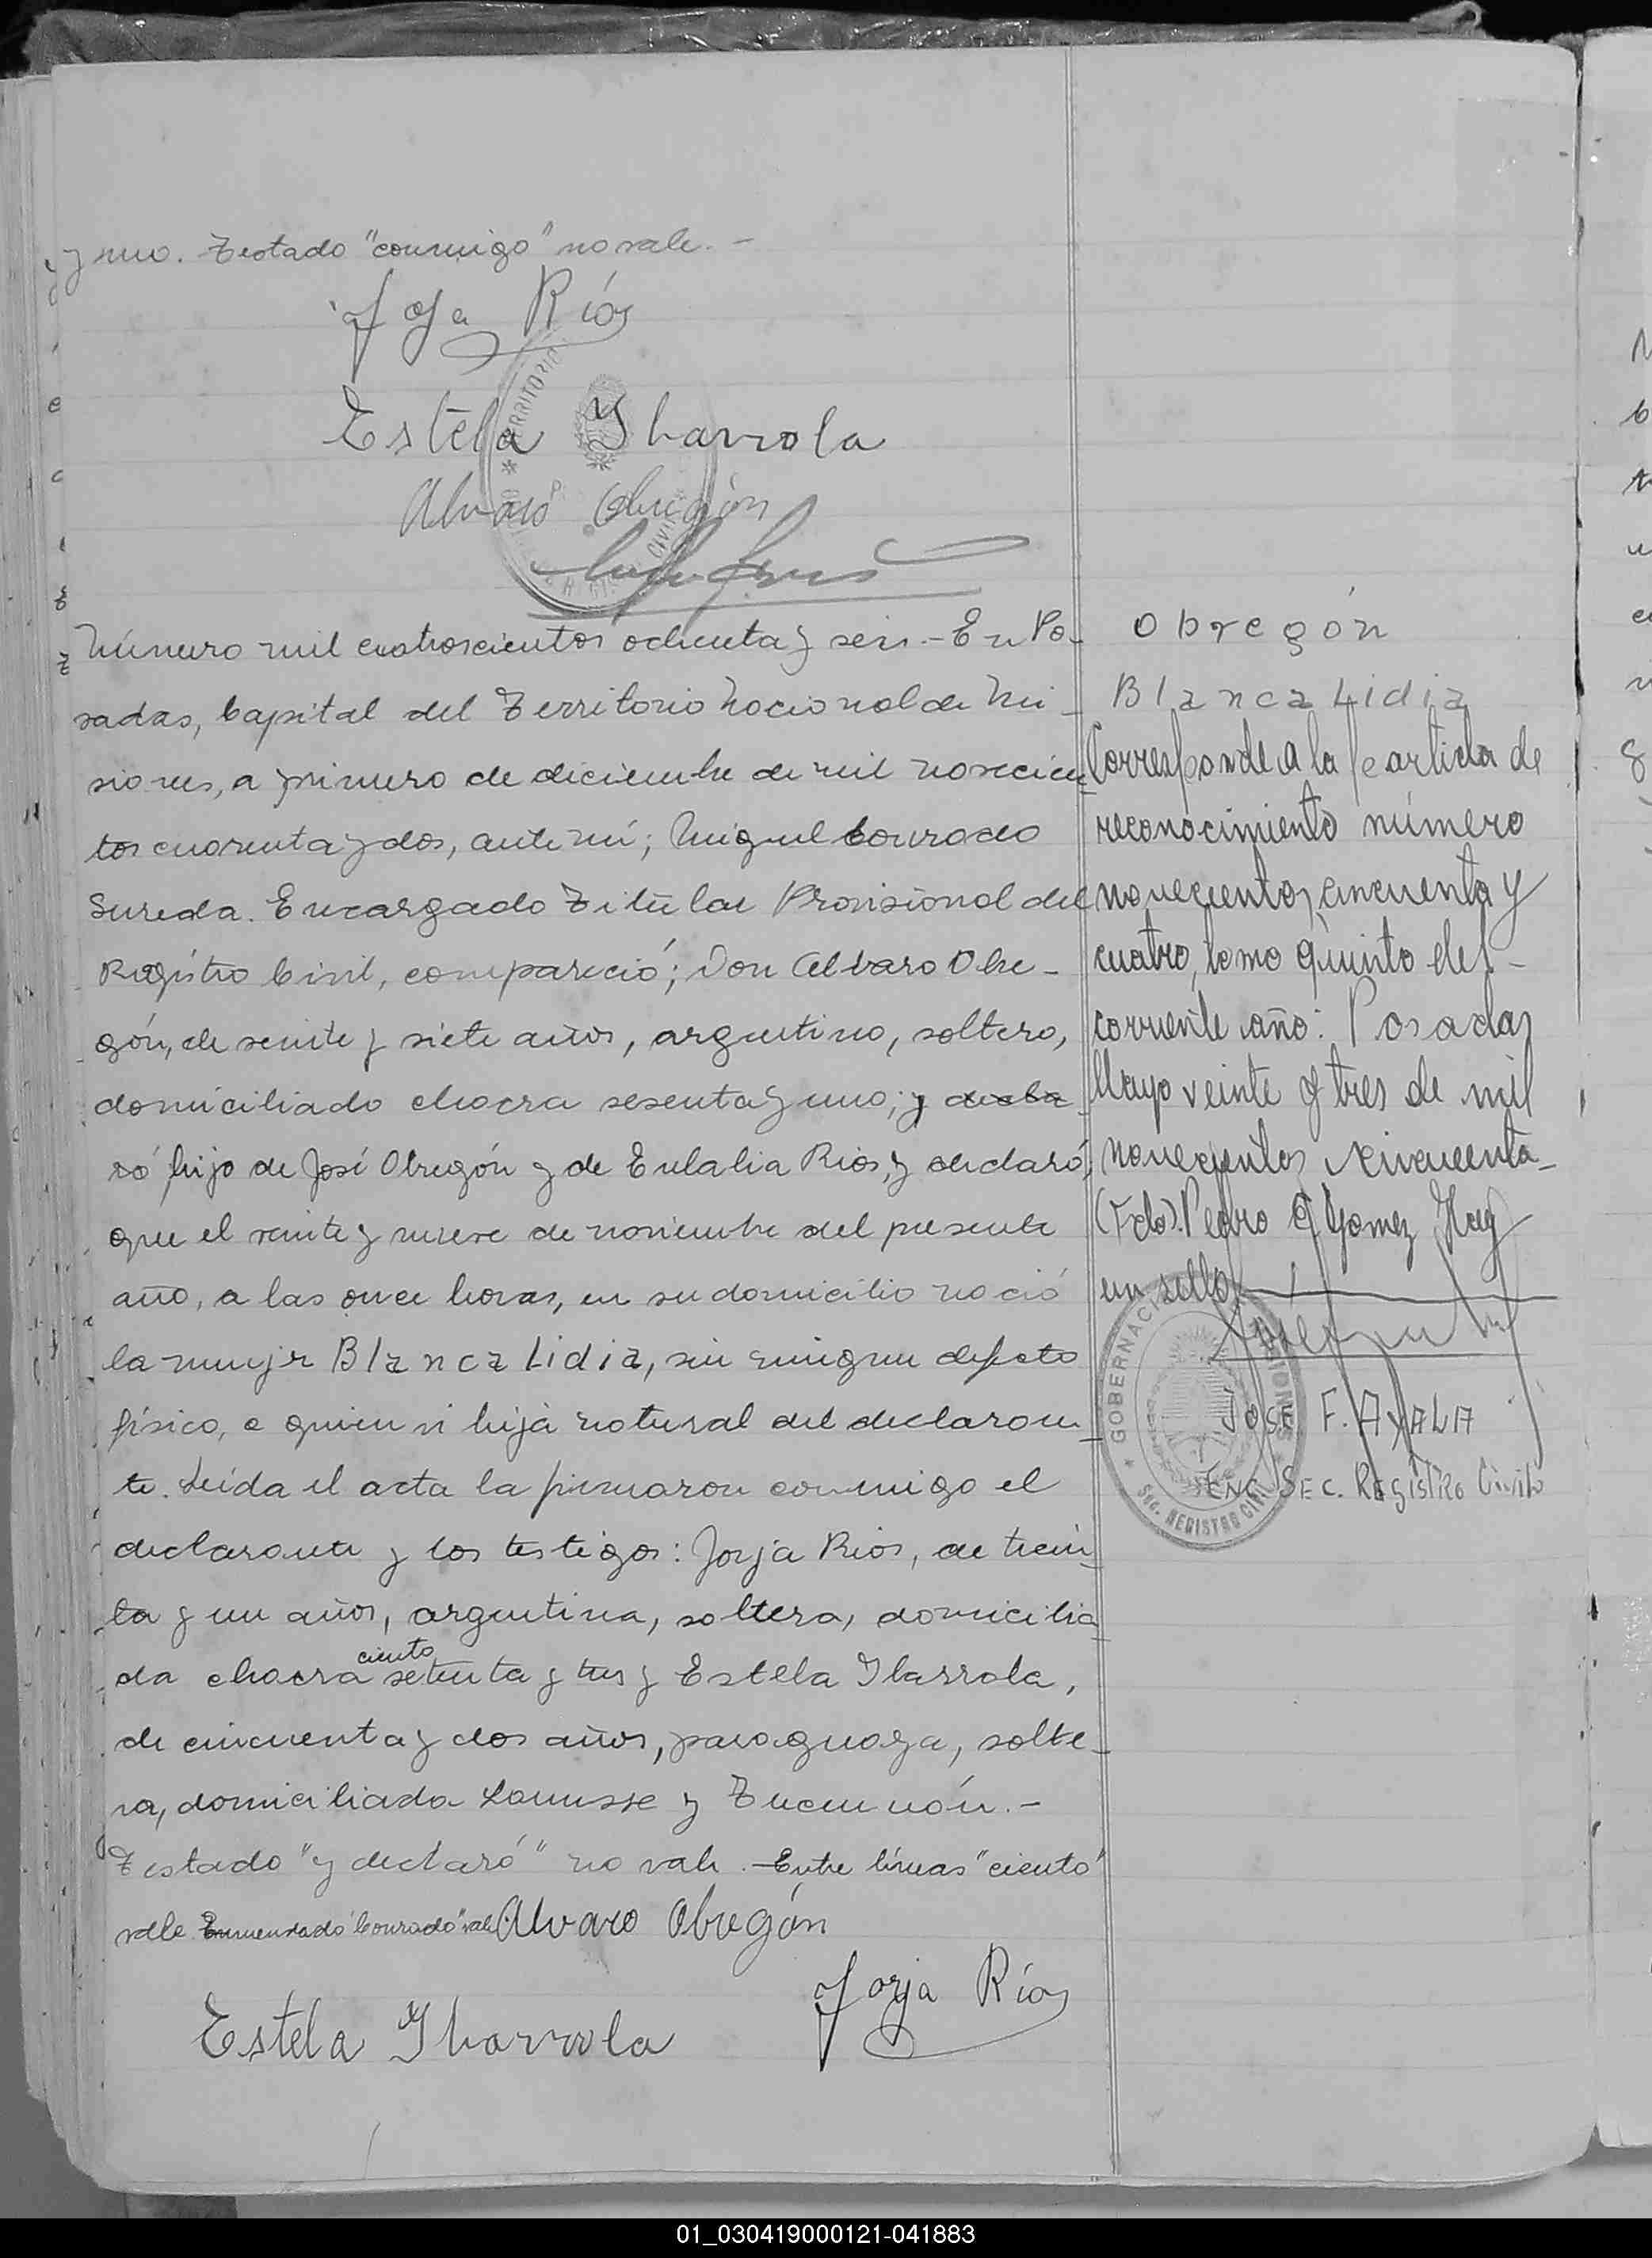 y uno. Testado "conmigo" no vale.-
Joja Ríos
Estela Ybarrola
Alvaro Obregón
Número mil cuatroscientos ochenta y seis.- En Po-
sadas, Capital del Territorio Nacional de Mi-
siones, a primero de diciembre de mil novecien-
tos cuarenta y dos, ante mí; Miguel Conrado
Sureda. Encargado Titular Provisional del
Registro Civil, compareció; Don Alvaro Obre-
gón, de veinte y siete años, argentino, soltero,
domiciliado chacra sesenta y uno; y decla-
ró hijo de José Obregón y de Eulalia Rios, y declaró,
que el veinte y nueve de noviembre del presente
año, a las once horas, en su domicilio nació
la mujer Blanca Lidia, sin ningun defecto
físico, a quien vi hija natural del declaran-
te. Leída el acta la firmaron conmigo el
declarante y los testigos: Jorja Rios, de trein-
ta y un años, argentina, soltera, domicilia-
da chacra ciento setenta y tres y Estela Ibarrola,
de cincuenta y dos años, paraguaya, solte-
ra, domiciliada Lanusse y Tucumán.-
Testado "y declaró" no vale.- Entre líneas "ciento"
vale Enmendado "Conrado" vale. Alvaro Obregón
Jorja Ríos
Estela Ybarrola
Obregón
Blanca Lidia
Corresponde a la partida de
reconocimiento número
novecientos cincuenta y
cuatro, tomo quinto del-
corriente año: Posadas
Mayo veinte y tres de mil
novecientos cincuenta-
(Fdo). Pedro G Gomez Hay
un sello
GOBERNACI MISIONES
SEC. REGISTRO CIVIL
JOSE F. AYALA
ENC. SEC. REGISTRO Civil
01_030419000121-041883